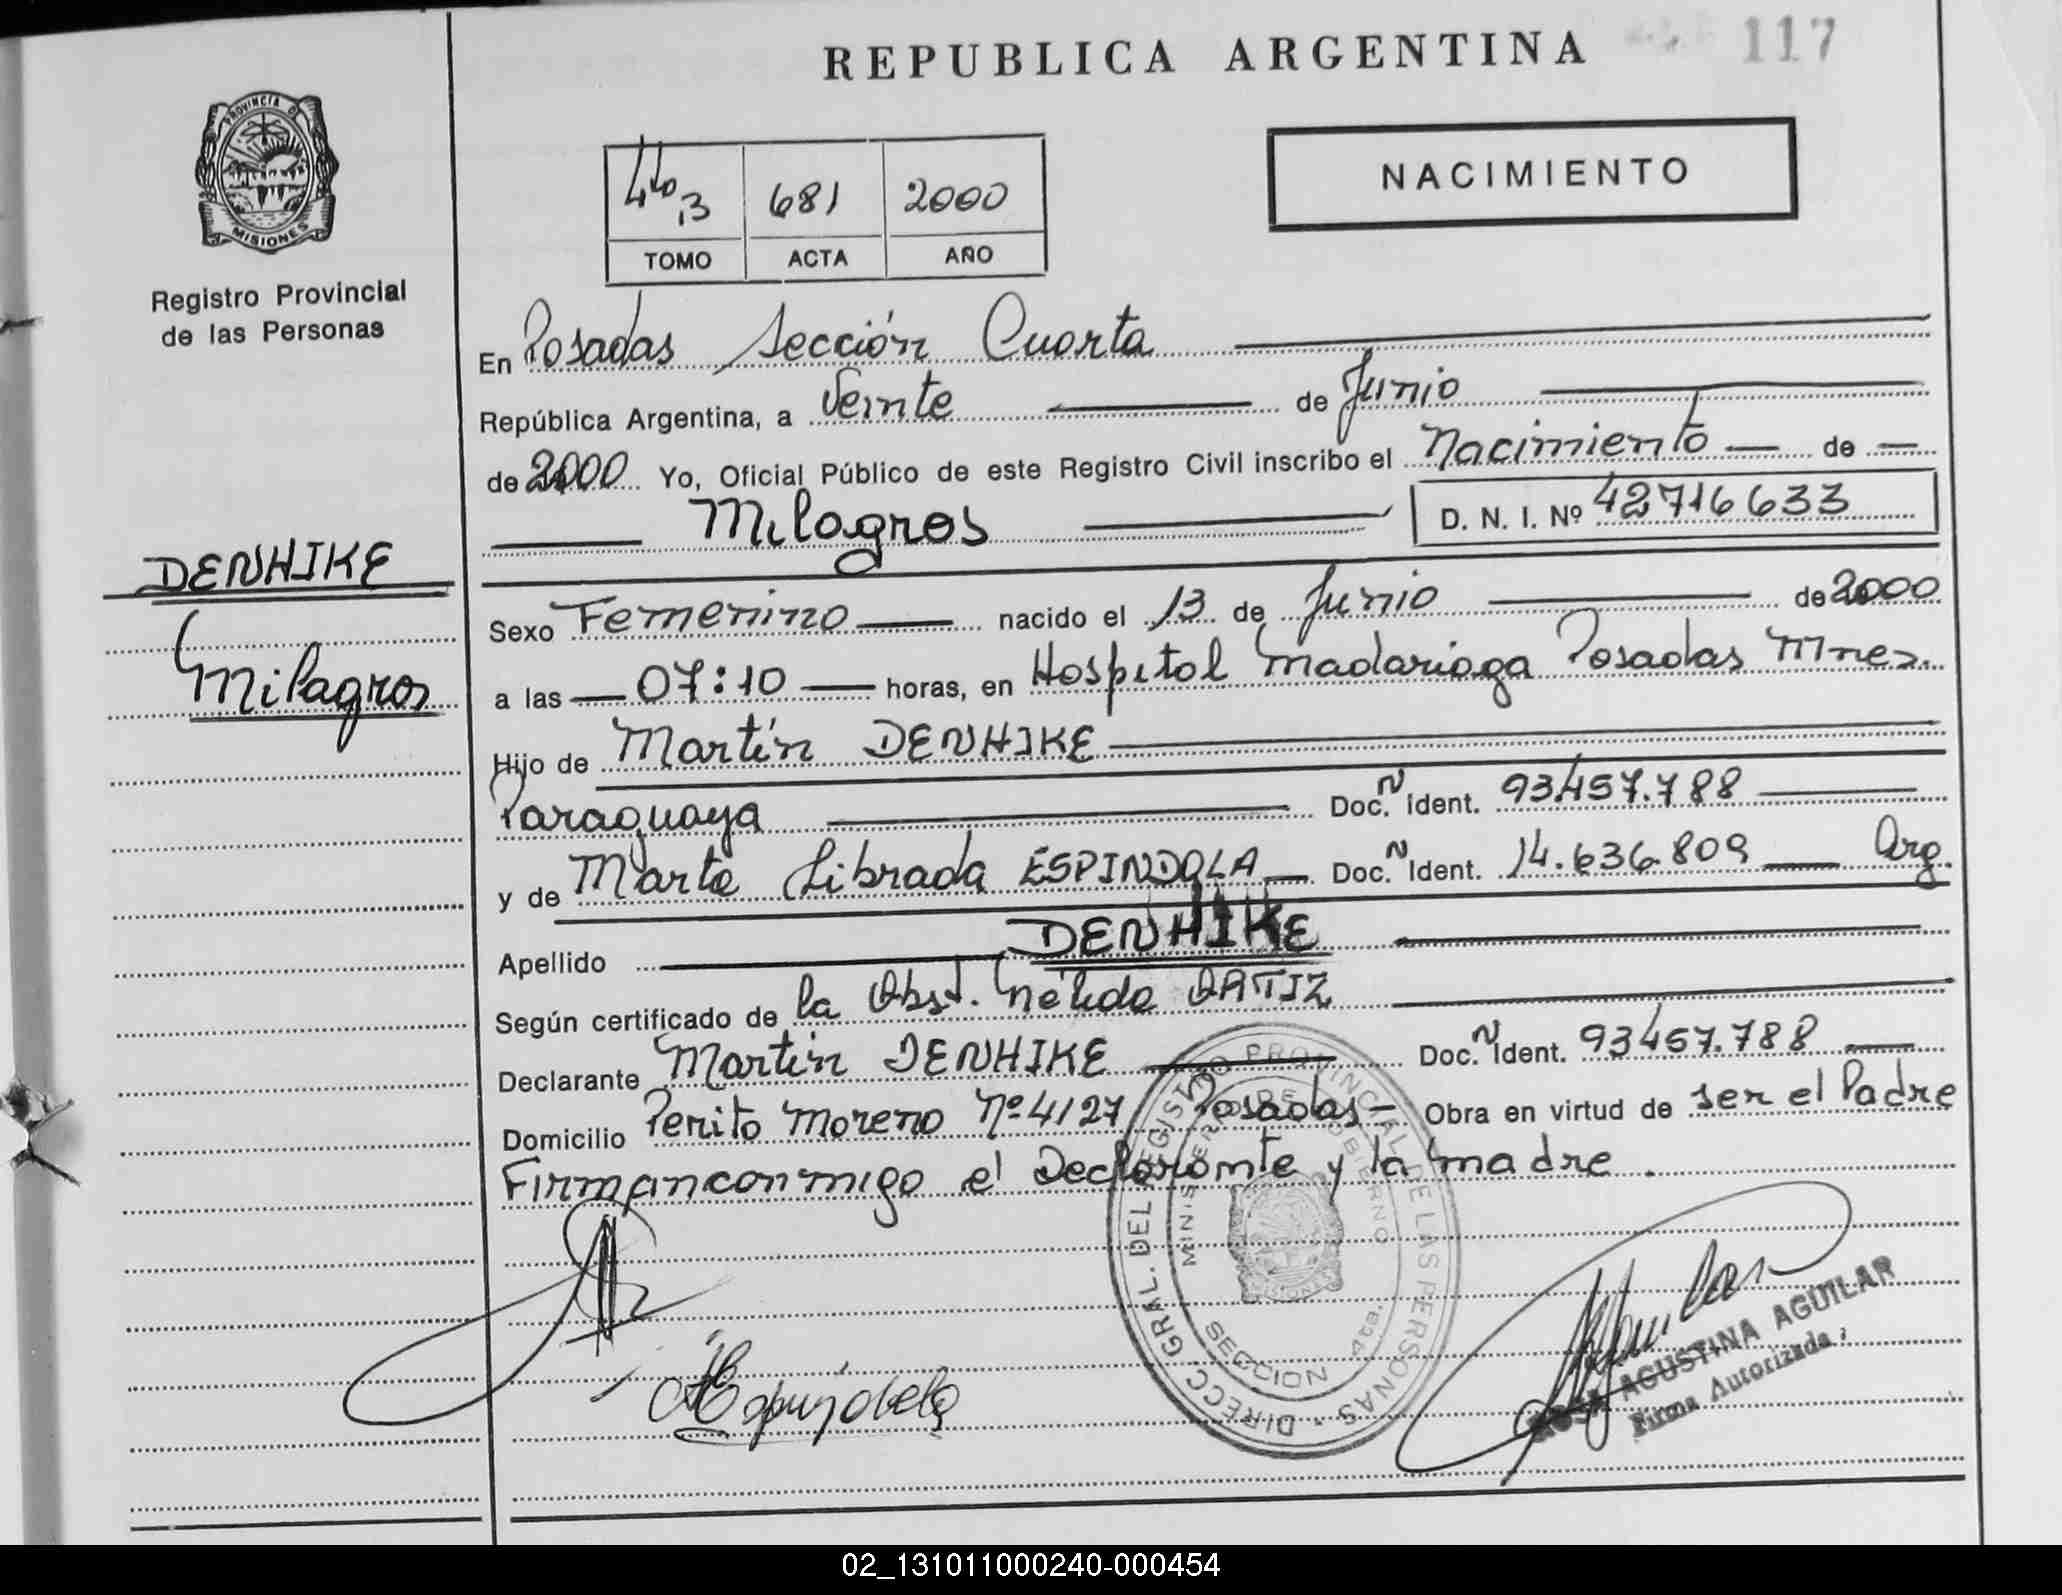 REPUBLICA ARGENTINA 117
PROVINCIA DE
MISIONES
Registro Provincial
de las Personas
4to 13 681 2000
TOMO ACTA AÑO
NACIMIENTO
En Posadas Sección Cuarta
República Argentina, a Veinte de Junio
de 2000 Yo, Oficial Público de este Registro Civil inscribo el Nacimiento de
Milagros D. N. I. Nº 42716633
DENHIKE
Milagros
Sexo Femenino nacido el 13 de Junio de 2000
a las 07:10 horas, en Hospital Madariaga Posadas Mnes.
Hijo de Martín DENHIKE
Paraguaya Doc. N Ident. 93457.788
y de Marta Librada ESPINDOLA Doc. N Ident. 14.636.809 Arg.
Apellido DENHIKE
Según certificado de la Obst. Nélida ORTIZ
Declarante Martín DENHIKE Doc. N Ident. 93457.788
Domicilio Perito Moreno Nº 4127 Posadas - Obra en virtud de ser el Padre
Firman conmigo el Declarante y la madre.
DIRECC. GRAL. DEL REGISTRO PROVINCIAL DE LAS PERSONAS -
MINISTERIO DE GOBIERNO
SECCION 4ta.
MISIONES
Espindola
Aguilar
ROSA AGUSTINA AGUILAR
Firma Autorizada
02_131011000240-000454